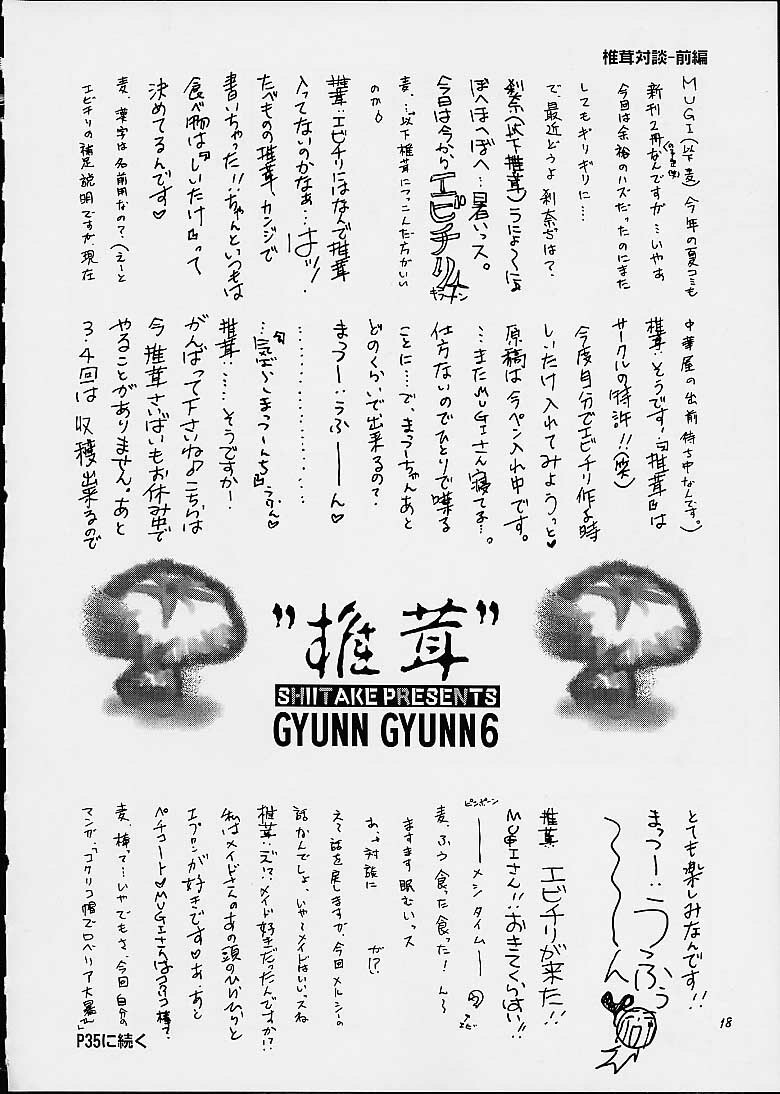 椎茸対談-前編
MUGI(以下麦)今年の夏コミも
新刊2冊なんですが…いやぁ
今回は余裕のハズだったのにまた
してもギリギリに…
で、最近どうよ刹奈ちは?
刹奈(以下椎茸)うにょ〜によ
ぽへほへぼへ…暑いっス。
今日は今からエビチリ
麦:…以下椎茸につっこんだ方がいい
のか?
椎茸:エビチリにはなんで椎茸
入ってないのかなぁ…はッ!
たべものの椎茸、カンジで
書いちゃった!!…ちゃんといつもは
食べ物は『しいたけ』って
決めてるんです♡
麦、漢字は名前用なの?(えーと
エビチリの補足説明ですが、現在
中華屋の出前待ち中なんです。)
椎茸:そうです!『椎茸』は
サークルの特許!!(笑)
今度自分でエビチリ作る時
しいたけ入れてみようっと♡
原稿は今ペン入れ中です。
…またMUGIさん寝てる…。
仕方ないのでひとりで喋る
ことに…で、まっつーちゃんあと
どのくらいで出来るの?
まっつー:うふーーん♡
………………
…『気ぃ〜、まっつーんち』うふん♡
椎茸:……そうですかー!
がんばって下さいね♪こちらは
今椎茸さいばいもお休み中で
やることがありません。あと
3・4回は収穫出来るので
"椎茸"
SHIITAKE PRESENTS
GYUNN GYUNN 6
とても楽しみなんです!!
まっつー:うっふぅ
〜〜〜ん
椎茸:エビチリが来た!!
MUGIさん!!おきてくらはい!!
ピンポーン
──メシタイム──
エビ
麦、ふぅ食った食った!ん〜
ますます眠むいっス
あっ対談に が!?
えっと話を戻しますが、今回メルシーの
話かんでしょ、いや〜メイドはいいっスね
椎茸:ズ!?メイド好きだったんですか!?
私はメイドさんのあの頭のひらひらと
エプロンが好きです♡あ、あと
ペチコート♡MUGIさんはコクリコ棒?
麦、棒って…いやでもさ、今回自分の
マンガ、「コクリコ帽でロベリア大暴れ」
P35に続く
18